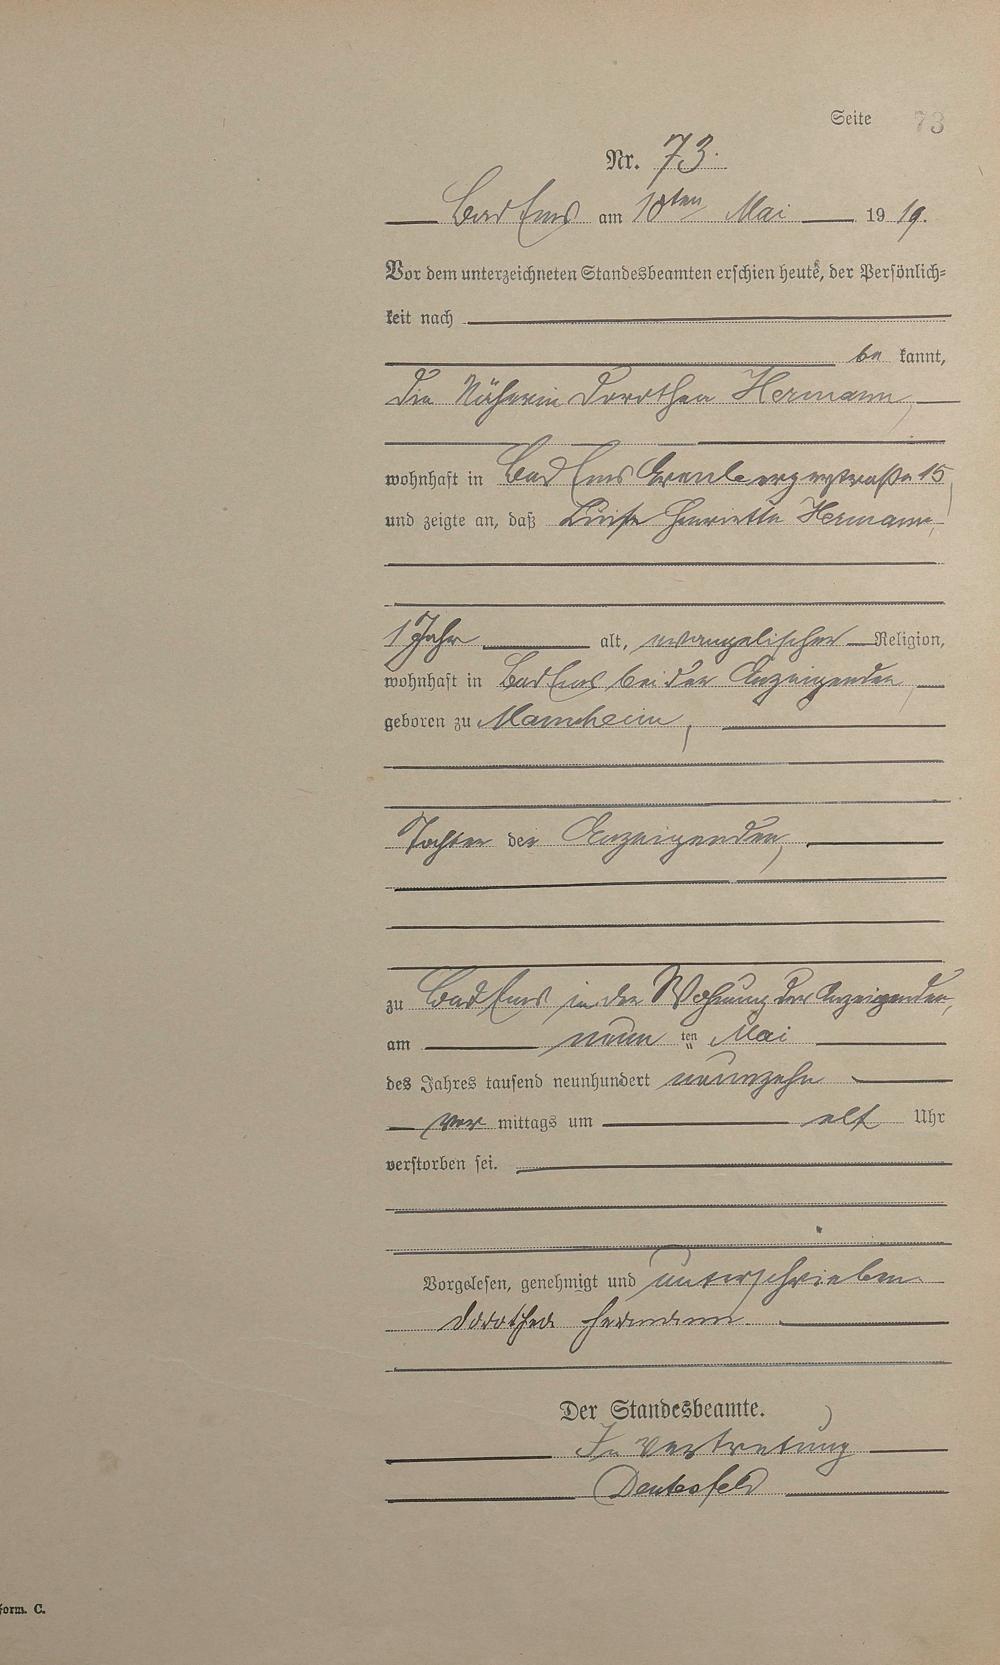 Seite 73
Nr. 73.
Bad Ems am 10ten Mai 19 19.
Vor dem unterzeichneten Standesbeamten erschien heute, der Persönlich-
keit nach
be kannt,
die Näherin Dorothea Hermann,
wohnhaft in Bad Ems Grenbergerstraße 15,
und zeigte an, daß Luise Henriette Hermann,
1 Jahr alt, evangelischer Religion,
wohnhaft in Bad Ems bei der Anzeigenden,
geboren zu Mannheim,
Tochter der Anzeigenden,
zu Bad Ems in der Wohnung der Anzeigenden,
am neun ten Mai
des Jahres tausend neunhundert neunzehn
vor mittags um elf Uhr
verstorben sei.
Vorgelesen, genehmigt und unterschrieben
Dorothea Hermann
Der Standesbeamte.
In Vertretung
Form. C.